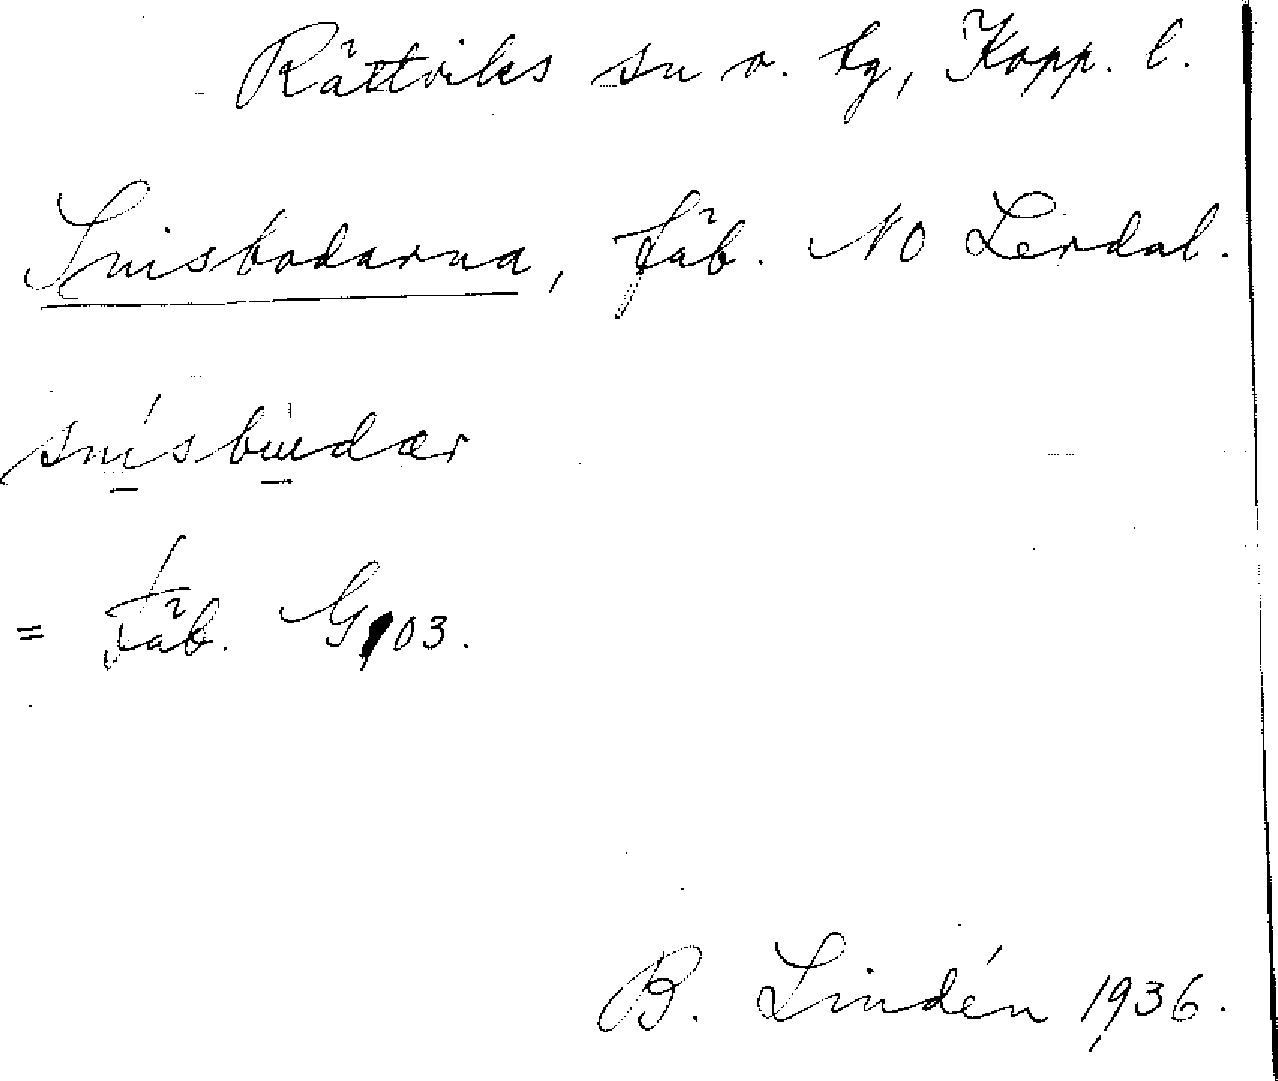 Rättviks sn o. tg, Kopp. l.
Snisbodarna, fäb. NO Lerdal.
snisbudær
= Fäb. G903.
B. Lindén 1936.